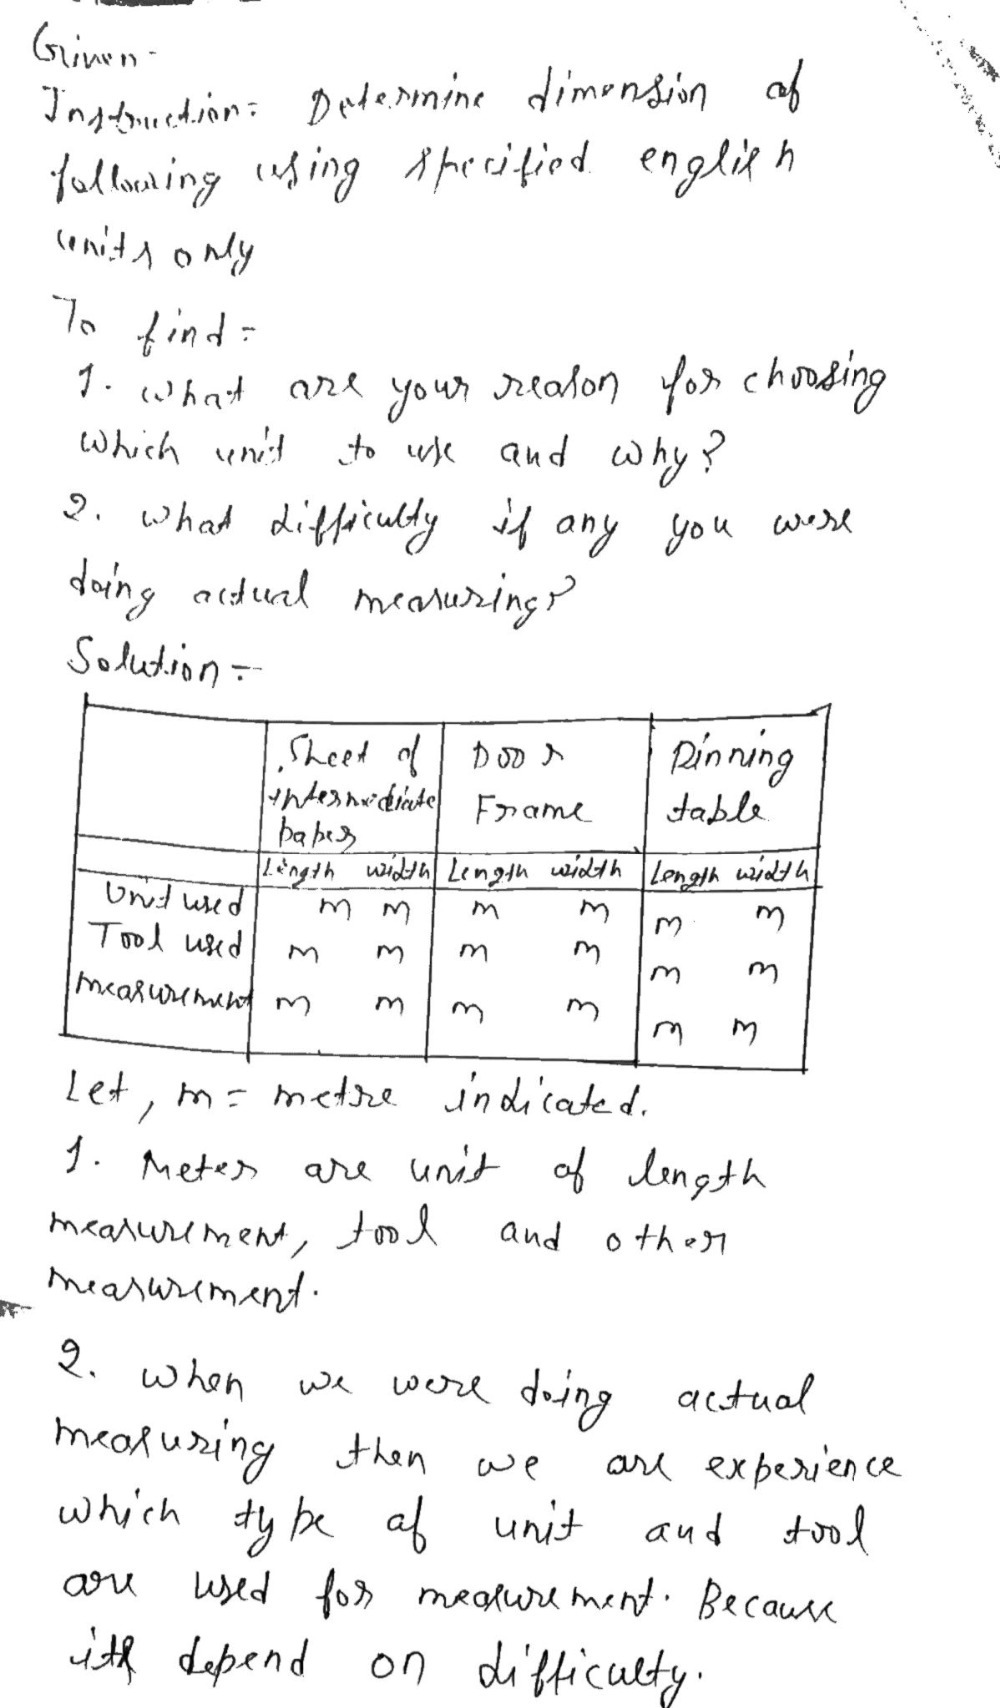 Given-
Instruction:- Determine dimension of
following using specified english
units only
To find:-
1. What are your reason for choosing
which unit to use and why?
2. What difficulty if any you were
doing actual measuring?
Solution:-
Sheet of intermediate paper Door Frame Dinning table
Length width Length width Length width
Unit used m m m m m m
Tool used m m m m m m
measurement m m m m m m
Let, m = metre indicated.
1. Meter are unit of length
measurement, tool and other
measurement.
2. When we were doing actual
measuring then we are experience
which type of unit and tool
are used for measurement. Because
its depend on difficulty.